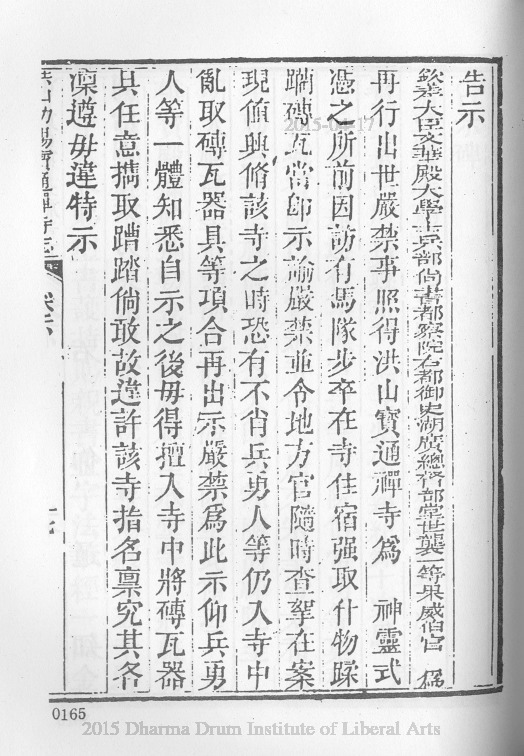 告示
欽差大臣文華殿大學士兵部尚書都察院右都御史湖廣總督部堂世襲一等果威伯官 爲
再行出世嚴禁事照得洪山寶通禪寺爲 神靈式
憑之所前因訪有馬隊步卒在寺住宿强取什物蹂
躪磚瓦當卽示諭嚴禁並令地方官隨時查拏在案
現值興脩該寺之時恐有不肖兵勇人等仍入寺中
亂取磚瓦器具等項合再出示嚴禁爲此示仰兵勇
人等一體知悉自示之後毋得擅入寺中將磚瓦器
具任意擕取蹧踏倘敢故違許該寺指名禀究其各
凜遵毋違特示
洪山功賜寶通禪寺志 卷六
十七
0165
2015-04-17
2015 Dharma Drum Institute of Liberal Arts